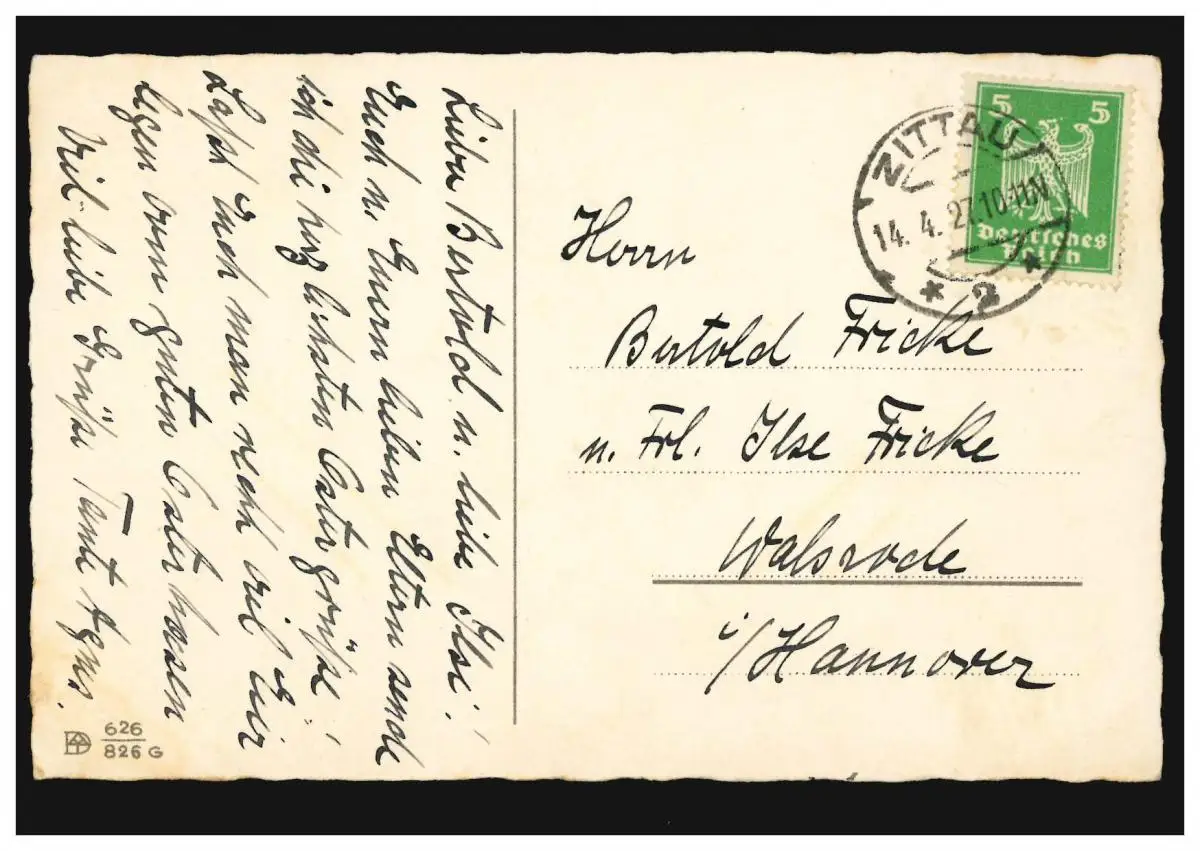 Lieber Bertold u. liebe Ilse!
Euch u. Euern lieben Eltern sende
ich die herzlichsten Ostergrüße!
Lasst Euch man recht viel Eier
legen vom guten Osterhasen
Viel liebe Grüße Tante Agnes.
626
826 G
ZITTAU
14. 4. 27. 10-11 N
* 2 *
5 5
Deutsches
Reich
Herrn
Bertold Fricke
u. Frl. Ilse Fricke
Walsrode
i/Hannover